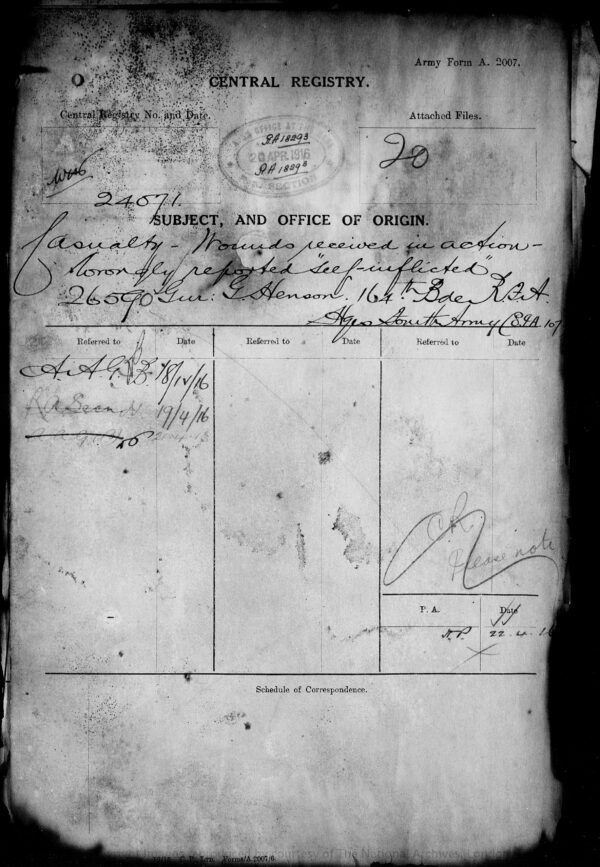 Army Form A. 2007.
CENTRAL REGISTRY.
Central Registry No. and Date.
Attached Files.
RA 18293
20 APR 1916
RA 18293
SECTION
20
24071.
SUBJECT, AND OFFICE OF ORIGIN.
Casualty - Wounds received in action -
wrongly reported "self-inflicted"
26590 Gnr: G. Henson. 164th Bde R.F.A.
Hqrs Fourth Army
Referred to
Date
Referred to
Date
Referred to
Date
A.A.G. 18/IV/16
19/4/16
Please note
P. A.
Date
N.P. 22.4.16
Schedule of Correspondence.
Forms/A.2007/6.
courtesy of The National Archives